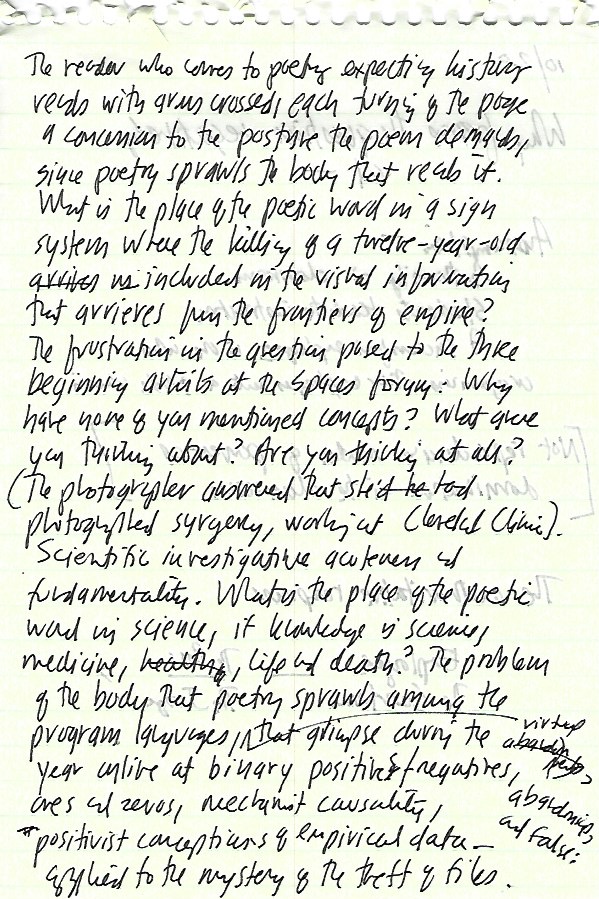 The reader who comes to poetry expecting history
reads with arms crossed, each turning of the page
a concession to the posture the poem demands,
since poetry sprawls the body that reads it.
What is the place of the poetic word in a sign
system where the killing of a twelve-year-old
arrives is included in the visual information
that arrives from the frontiers of empire?
The frustration in the question posed to the three
beginning artists at the Spaces forum: Why
have none of you mentioned concepts? What are
you thinking about? Are you thinking at all?
(The photographer answered that she'd he had
photographed surgery, working at Cleveland Clinic).
Scientific investigative acuteness and
fundamentality. What is the place of the poetic
word in science, if knowledge is science,
medicine, healthy, life and death? The problem
of the body that poetry sprawls among the
program languages, that glimpse during the virtues
year online at binary positives & negatives,
ones and zeros, mechanist causality, abandonings
and false:
positivist conceptions of empirical data—
applied to the mystery of the theft of files.